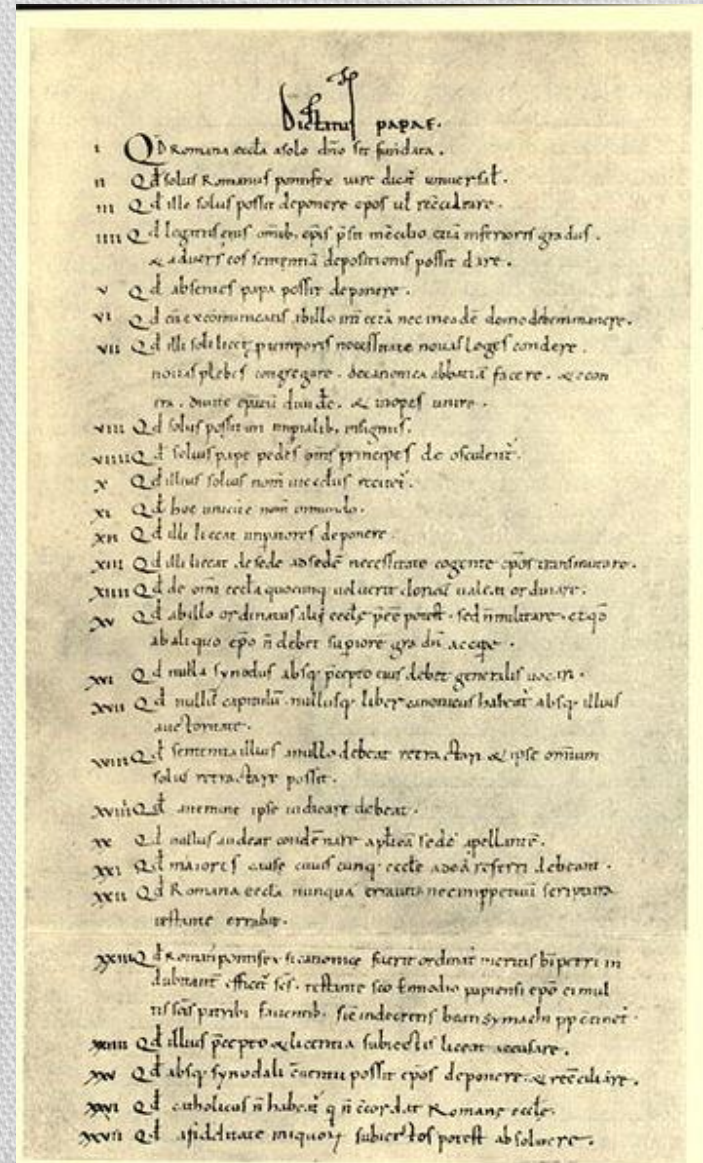 Dictatus papae.
I QD Romana eccla a solo dño sit fundata.
II Qđ solus Romanus pontifex iure dicat͛ universał.
III Qđ ille solus possit deponere epos uł rec̄ciliare.
IIII Qđ legatus eius omib; epis p̄sit in c̄cilio etiā inferioris gradus.
& adversus eos sententiā depositionis possit dare.
V Qđ absentes papa possit deponere.
VI Qđ cū excomunicatis ab illo int̄ cet̄a nec in eadē domo debem; manere.
VII Qđ illi soli licet p temporis necessitate novas leges condere.
novas plebes congregare. de canonica abbatiā facere. & econ
tra. divite epatū dividere. & inopes unire.
VIII Qđ solus possit uti impialib; insigniis.
VIIII Qđ solius pape pedes oms principes deosculent͛.
X Qđ illius solius nom̄ in ecclis recitet͛.
XI Qđ hoc unicū ē nom̄ in mundo.
XII Qđ illi liceat impatores deponere.
XIII Qđ illi liceat de sede ad sedē necessitate cogente epos transmutare.
XIIII Qđ de omi eccla quocunq; voluerit clericū valeat ordinare.
XV Qđ ab illo ordinatus alii eccle p̄ee potest. sed n̄ militare. et qđ
ab aliquo epo n̄ debet supiore gradū accipe.
XVI Qđ nulla synodus absq; p̄cepto eius debet generalis vocari.
XVII Qđ nullū capitulū nullusq; liber canonicus habeat͛ absq; illius
auctoritate.
XVIII Qđ sententia illius a nullo debeat retractari & ipse omium
solus retractare possit.
XVIIII Qđ a nemine ipse iudicare debeat.
XX Qđ nullus audeat condēnare aplicā sedē apellante.
XXI Qđ maiores cause cuiuscunq; eccle ad eā referri debeant.
XXII Qđ Romana eccla nunquā erravit nec imppetuū scriptura
testante errabit.
XXIII Qđ Roman͛ pontifex si canonice fuerit ordinat͛ meritis bi petri in
dubitant͛ efficit͛ scs. testante sco Ennodio papiensi epo ei mul
tis scis patrib; faventib; sic in decretis beati Symachi pp c̄tinet͛.
XXIIII Qđ illius p̄cepto & licentia subiectis liceat accusare.
XXV Qđ absq; synodali c̄ventu possit epos deponere & rec̄ciliare.
XXVI Qđ catholicus n̄ habeat͛ q n̄ c̄cordat Romane eccle.
XXVII Qđ a fidelitate iniquoꝝ subiectos potest absolvere.